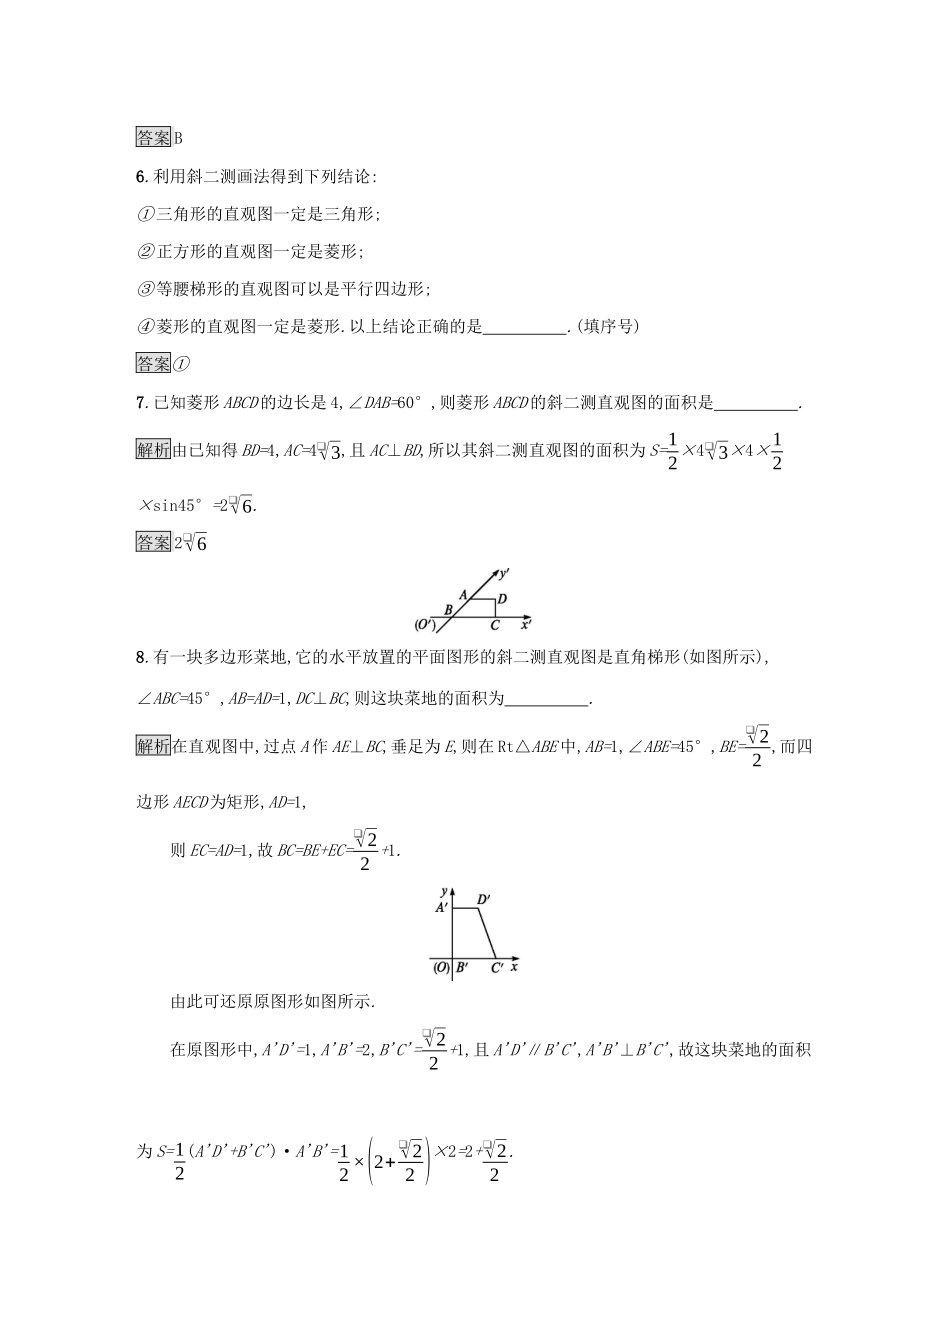 答案B
6.利用斜二测画法得到下列结论:
①三角形的直观图一定是三角形;
②正方形的直观图一定是菱形;
③等腰梯形的直观图可以是平行四边形;
④菱形的直观图一定是菱形.以上结论正确的是__________.(填序号)
答案①
7.已知菱形ABCD的边长是4,∠DAB=60°,则菱形ABCD的斜二测直观图的面积是__________.
解析由已知得BD=4,AC=4√3,且AC⊥BD,所以其斜二测直观图的面积为S=1/2×4√3×4×1/2
×sin45°=2√6.
答案2√6
y'
A D
B
(O') C x'
8.有一块多边形菜地,它的水平放置的平面图形的斜二测直观图是直角梯形(如图所示),
∠ABC=45°,AB=AD=1,DC⊥BC,则这块菜地的面积为__________.
解析在直观图中,过点A作AE⊥BC,垂足为E,则在Rt△ABE中,AB=1,∠ABE=45°,BE=√2/2,而四
边形AECD为矩形,AD=1,
则EC=AD=1,故BC=BE+EC=√2/2+1.
y
A' D'
(O) B' C' x
由此可还原原图形如图所示.
在原图形中,A'D'=1,A'B'=2,B'C'=√2/2+1,且A'D'∥B'C',A'B'⊥B'C',故这块菜地的面积
为S=1/2(A'D'+B'C')·A'B'=1/2×(2+√2/2)×2=2+√2/2.